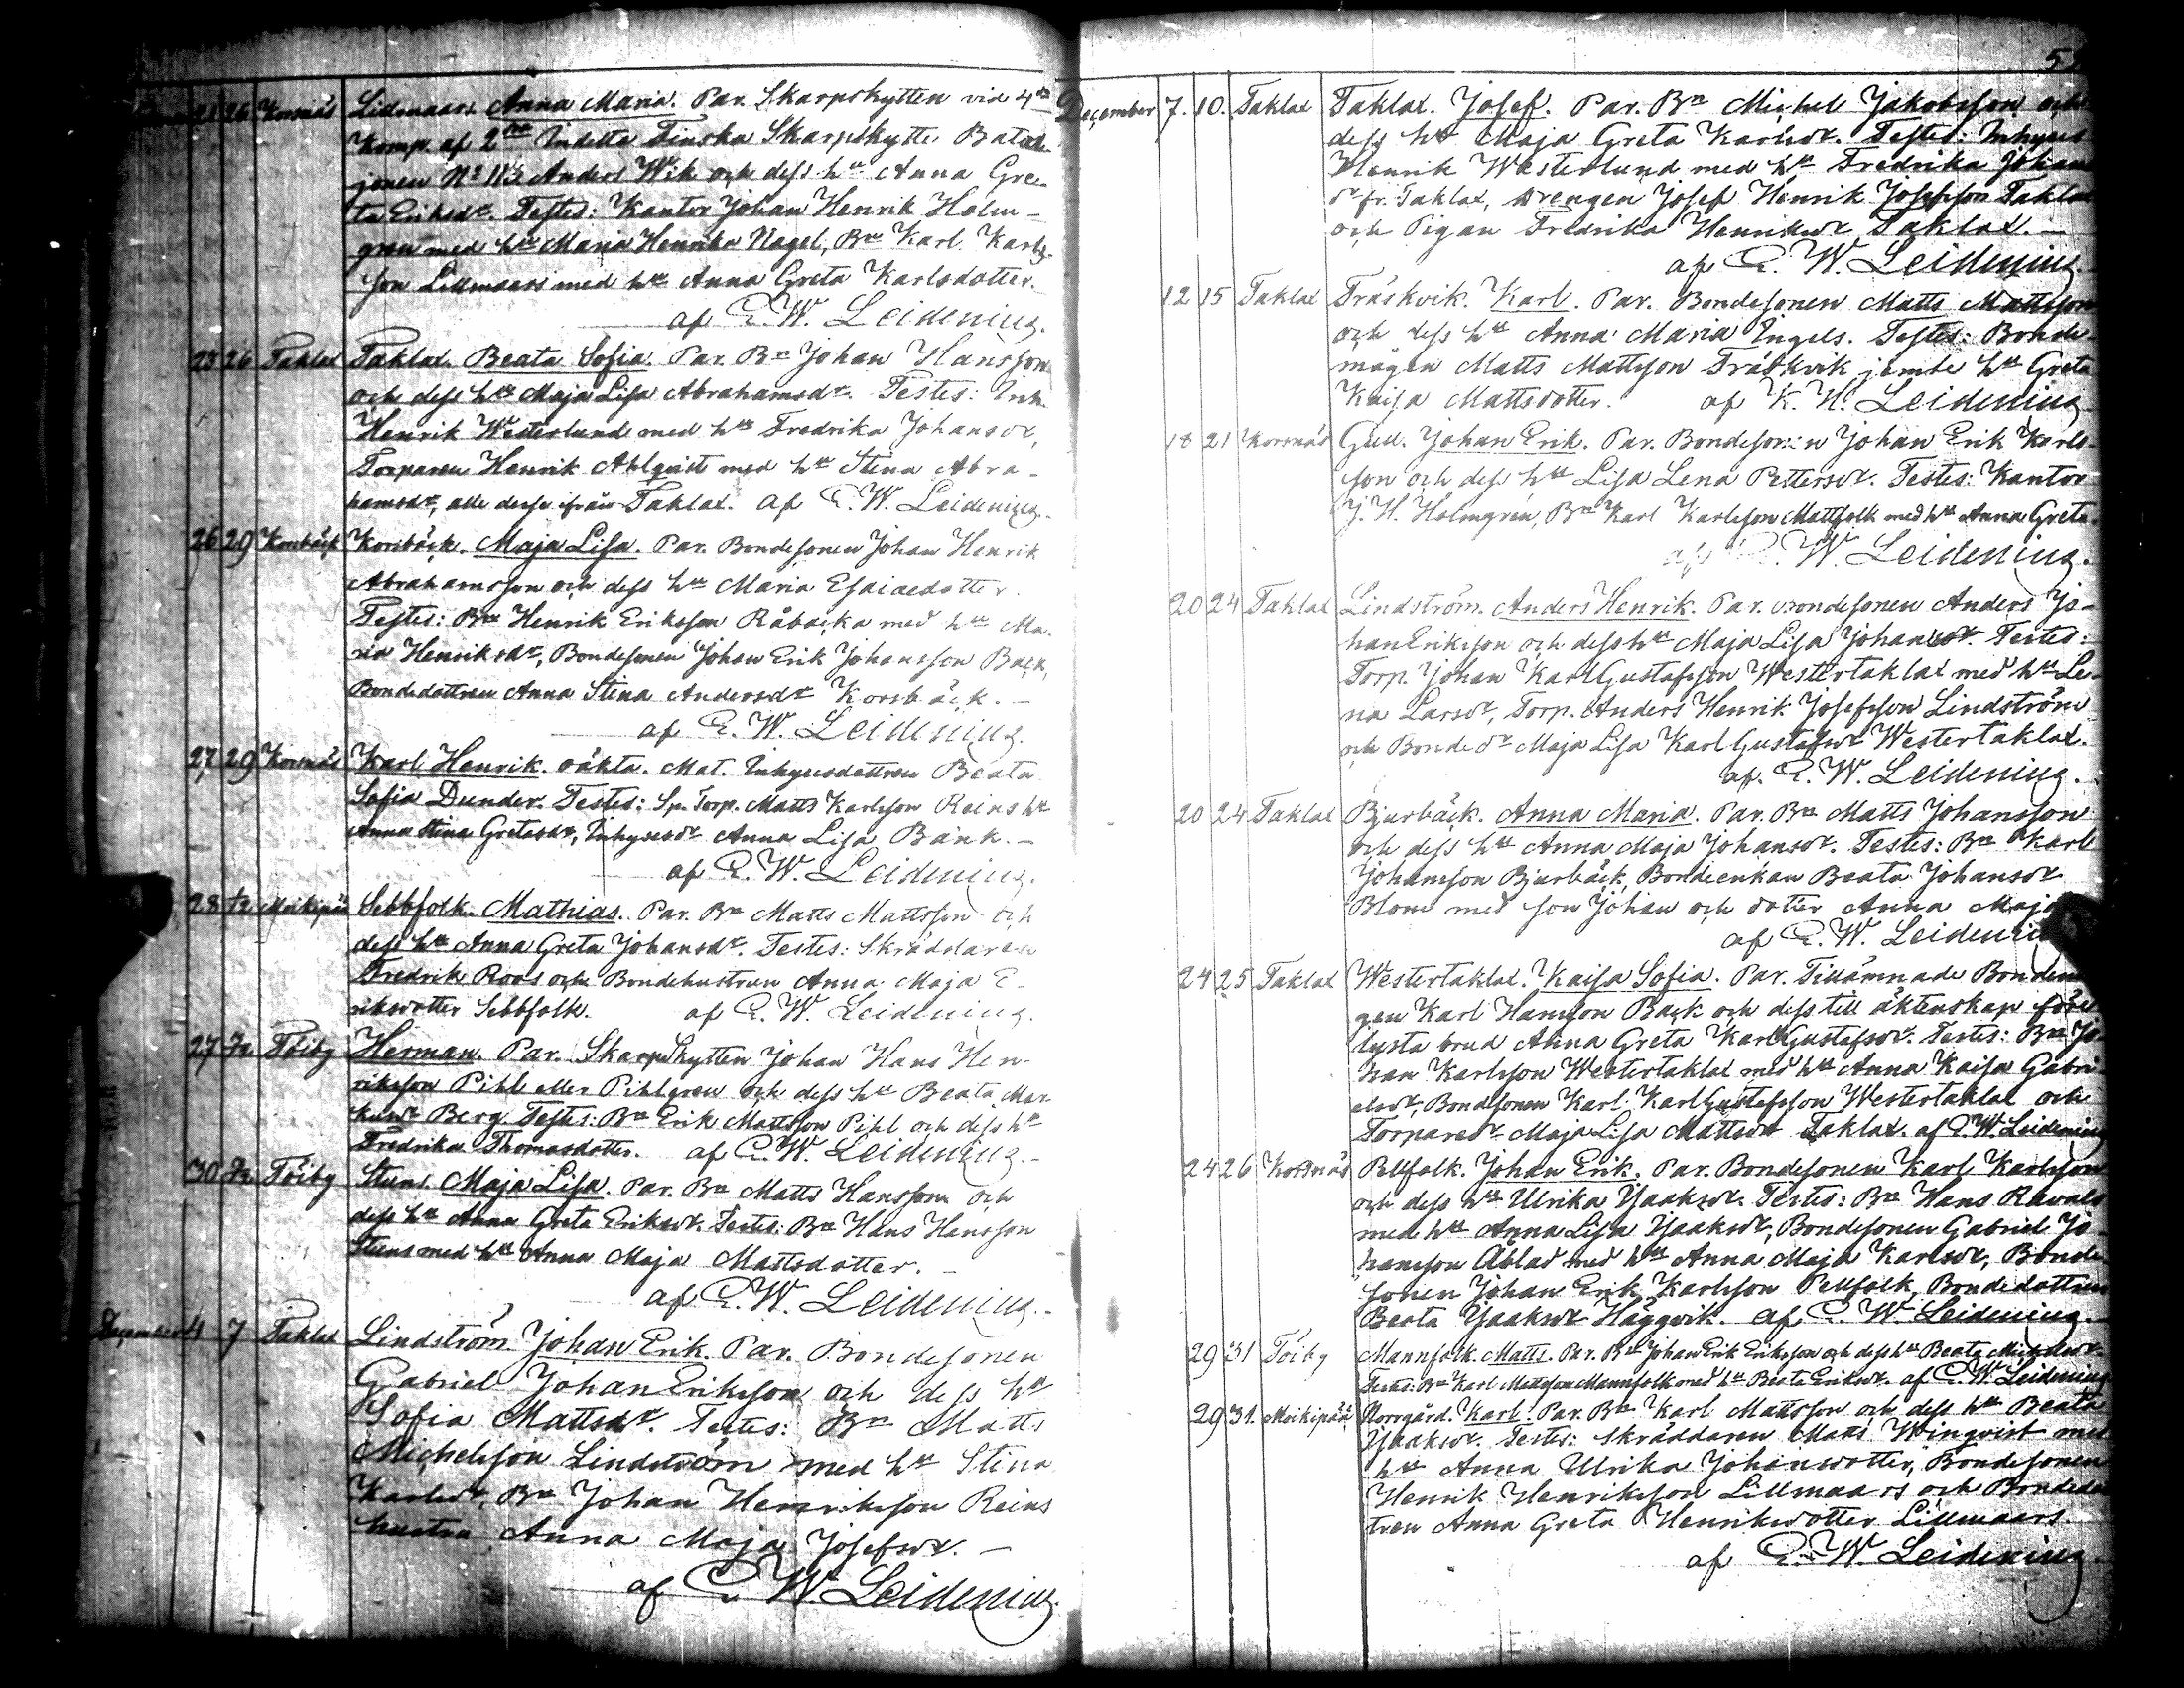 21 26 Korsnäs Lidmaars Anna Maria. Par. Skarpskytten vid 4de
Komp. af 2dra Indelta Finska Skarpskytte Batal-
jonen No 113 Anders Wik och dess hu Anna Gre-
ta Eriksdr. Testes: Kantor Johan Henrik Holm-
gren med hu Maria Henrika Nagel, Bn Karl Karls-
son Lillmaars med hu Anna Greta Karlsdotter.
af E. W. Leidenius.
23 26 Taklax Taklax. Beata Sofia. Par. Bn Johan Hansson
och dess hu Maja Lisa Abrahamsdr. Testes: Inh.
Henrik Westerlund med hu Fredrika Johansdr,
Torparen Henrik Ahlqvist med hu Stina Abra-
hamsdr, alle desse ifrån Taklax. af E. W. Leidenius.
26 29 Korsbäck Korsbäck. Maja Lisa. Par. Bondesonen Johan Henrik
Abrahamsson och dess hu Maria Esaiaedotter.
Testes: Bn Henrik Eriksson Råbacka med hu Ma-
ria Henriksdr, Bondesonen Johan Erik Johansson Back,
Bondedottren Anna Stina Andersdr Korsbäck. –
af E. W. Leidenius.
27 29 Korsnäs Karl Henrik. oäkta. Mat. Inhysesdottren Beata
Sofia Dunder. Testes: Sp. Torp. Matts Karlsson Reins hu
Anna Stina Gretasdr, Inhysesdr Anna Lisa Bänk. –
af E. W. Leidenius.
28 Moikipää Sebbfolk. Mathias. Par. Bn Matts Mattsson och
dess hu Anna Greta Johansdr. Testes: Skräddaren
Fredrik Roos och Bondehustrun Anna Maja E-
riksdotter Sebbfolk. af E. W. Leidenius.
27 Töiby Herman. Par. SkarpSkytten Johan Hans Hen-
riksson Pihl eller Pihlgren och dess hu Beata Mar-
kusdr Berg. Testes: Bn Erik Mattsson Pihl och dess hu
Fredrika Thomasdotter. af E. W. Leidenius. –
30 Töiby Stens. Maja Lisa. Par. Bn Matts Hansson och
dess hu Anna Greta Eriksdr. Testes: Bn Hans Hansson
Stens med hu Anna Maja Mattsdotter. –
af E. W. Leidenius.
December 4 7 Taklax Lindström. Johan Erik. Par. Bondesonen
Gabriel Johan Eriksson och dess hu
Sofia Mattsdr. Testes: Bn Matts
Michelsson Lindström med hu Stina
Karlsdr, Bn Johan Henriksson Reins
hustru Anna Maja Josefsdr. –
af E. W. Leidenius.
December 7. 10. Taklax Taklax. Josef. Par. Bn Michel Jakobsson och
dess hu Maja Greta Karlsdr. Testes: Inhyses
Henrik Westerlund med hu Fredrika Johans
dr fr. Taklax, Drengen Josef Henrik Josefsson Taklax
och Pigan Fredrika Henriksdr Taklax. –
af E. W. Leidenius.
12 15 Taklax Träskvik. Karl. Par. Bondesonen Matts Mattsson
och dess hu Anna Maria Engels. Testes: Bonde-
mågen Matts Mattsson Träskvik jemte hu Greta
Kaisa Mattsdotter. af K. H. Leidenius.
18 21 Korsnäs Gud. Johan Erik. Par. Bondesonen Johan Erik Karls-
son och dess hu Lisa Lena Pettersdr. Testes: Kantor
J. H. Holmgren, Bn Karl Karlsson Mattfolk med hu Anna Greta.
af E. W. Leidenius.
20 24 Taklax Lindström. Anders Henrik. Par. Bondesonen Anders Jo-
han Eriksson och dess hu Maja Lisa Johansdr. Testes:
Torp. Johan Karl Gustafsson Westertaklax med hu Le-
na Larsdr, Torp. Anders Henrik Josefsson Lindström
och Bondedr Maja Lisa Karl Gustafsdr Westertaklax.
af. E. W. Leidenius.
20 24 Taklax Bjurbäck. Anna Maria. Par. Bn Matts Johansson
och dess hu Anna Maja Johansdr. Testes: Bn Karl
Johansson Bjurbäck, Bondeenkan Beata Johansdr
Blom med son Johan och dotter Anna Maja
af E. W. Leidenius
24 25 Taklax Westertaklax. Kaisa Sofia. Par. Tillämnade Bondem
gen Karl Hansson Back och dess till äktenskap före
lysta brud Anna Greta Karl Gustafsdr. Testes: Bn Jo
han Karlsson Westertaklax med hu Anna Kaisa Gabri-
elsdr, Bondesonen Karl KarlGustafsson Westertaklax och
Torparedr Maja Lisa Mattsdr Taklax. af E. W. Leidenius
24 26 Korsnäs Pellfolk. Johan Erik. Par. Bondesonen Karl Karlsson
och dess hu Ulrika Isaaksdr. Testes: Bn Hans Ravals
med hu Anna Lisa Isaaksdr, Bondesonen Gabriel Jo-
hansson Åblad med hu Anna Maja Karlsdr, Bonde
sonen Johan Erik Karlsson Pellfolk, Bondedottren
Beata Isaaksdr Häggvik. af E. W. Leidenius. –
29 31 Töiby Mannfolk. Matts. Par. Bn Johan Erik Eriksson och dess hu Beata
Testes: Bn Karl Mattsson Mannfolk med hu Beata Eriksdr. af E. W. Leidenius
29 31. Moikipää Norrgård. Karl. Par. Bn Karl Mattsson och dess hu Beata
Isaaksdr. Testes: Skräddaren Matts Winqvist med
hu Anna Ulrika Johansdotter, Bondesonen
Henrik Henriksson Lillmaars och Bondedo
tren Anna Greta Henriksdotter Lillmaars.
af E. W. Leidenius.